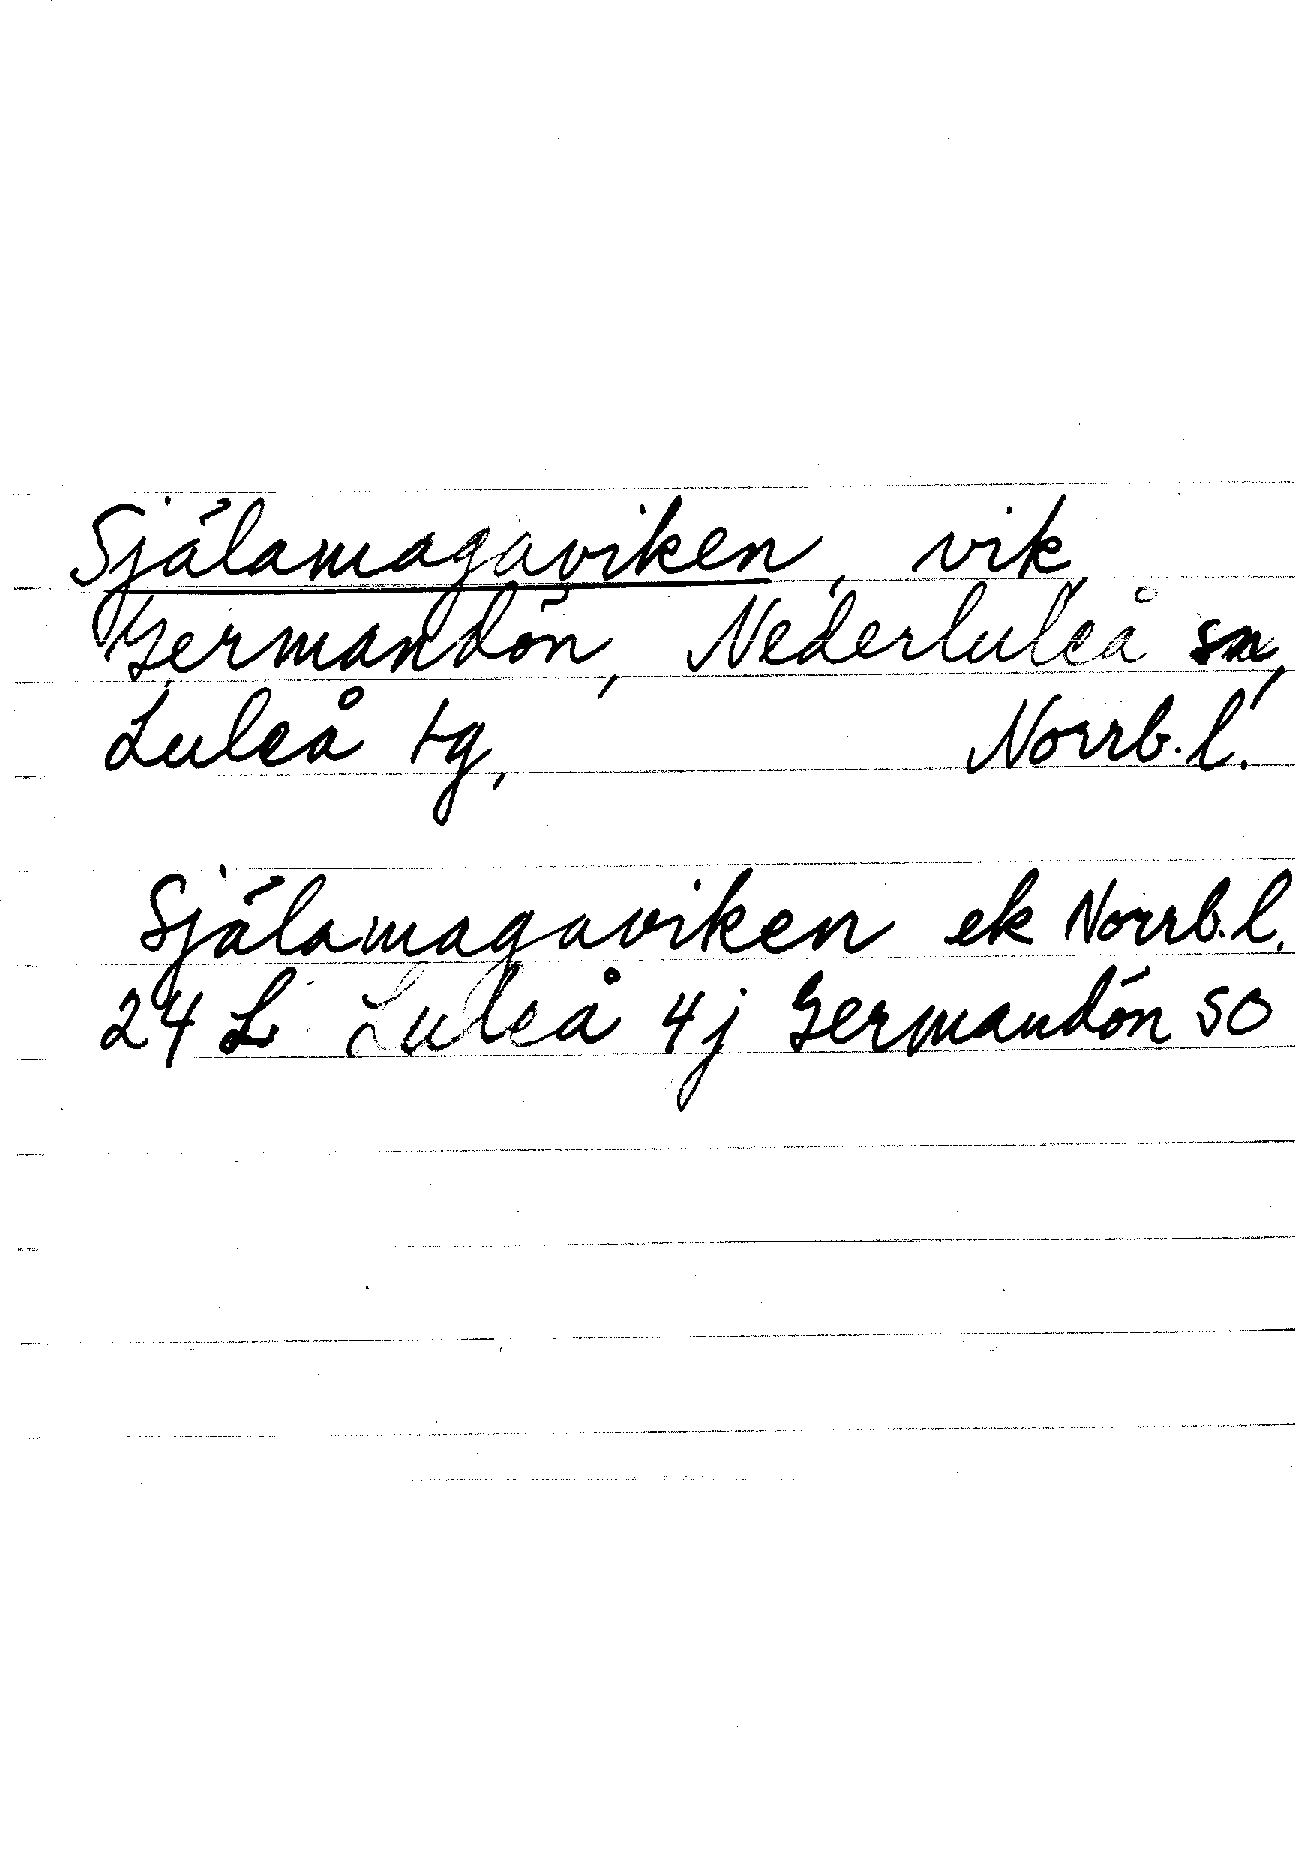 Själamagaviken, vik
Germandön, Nederluleå sn,
Luleå tg, Norrb.l.
Själamagaviken ek Norrb.l.
24 L Luleå 4j Germandön SO